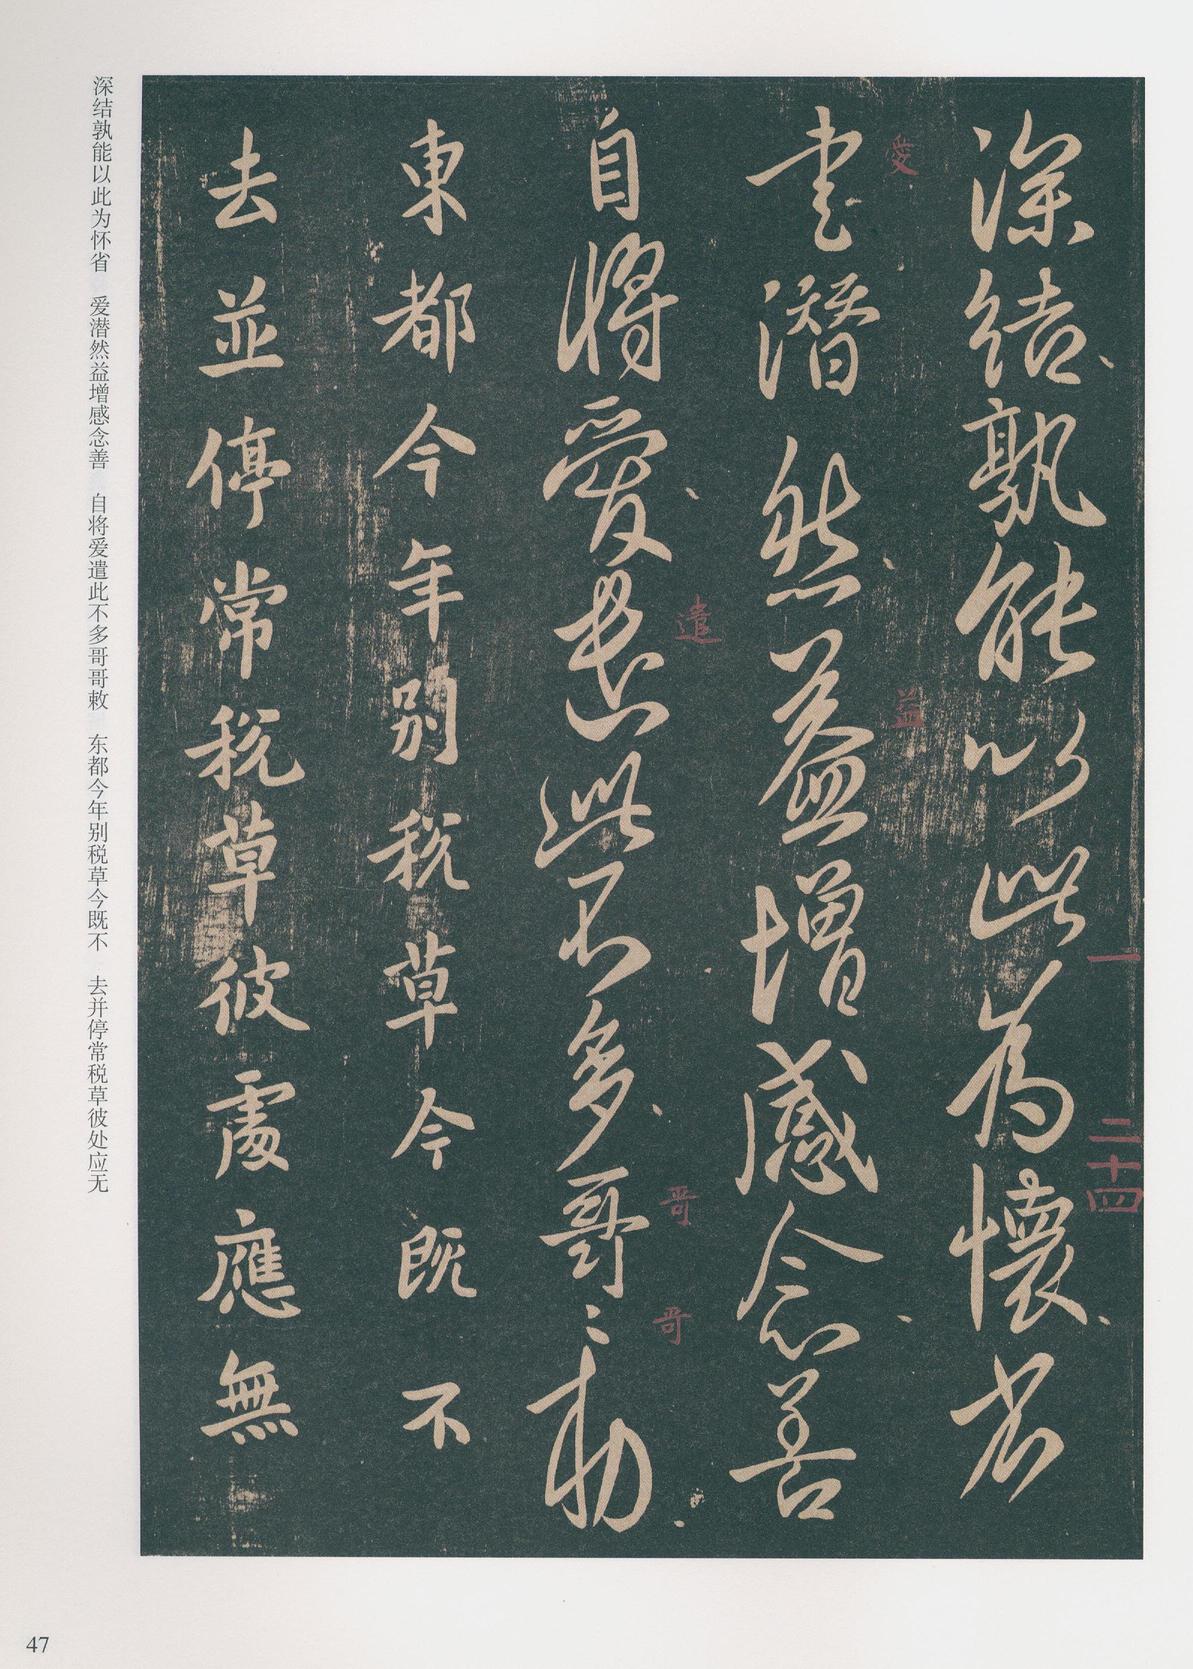 深結孰能以此為懷省
書潛然益增感念善
自將愛遣此不多哥〻勅
東都今年別稅草今既不
去並停常稅草彼處應無
一
二十四
愛
益
遣
哥
哥
深结孰能以此为怀省 爱潜然益增感念善 自将爱遣此不多哥哥敕 东都今年别税草今既不 去并停常税草彼处应无
47